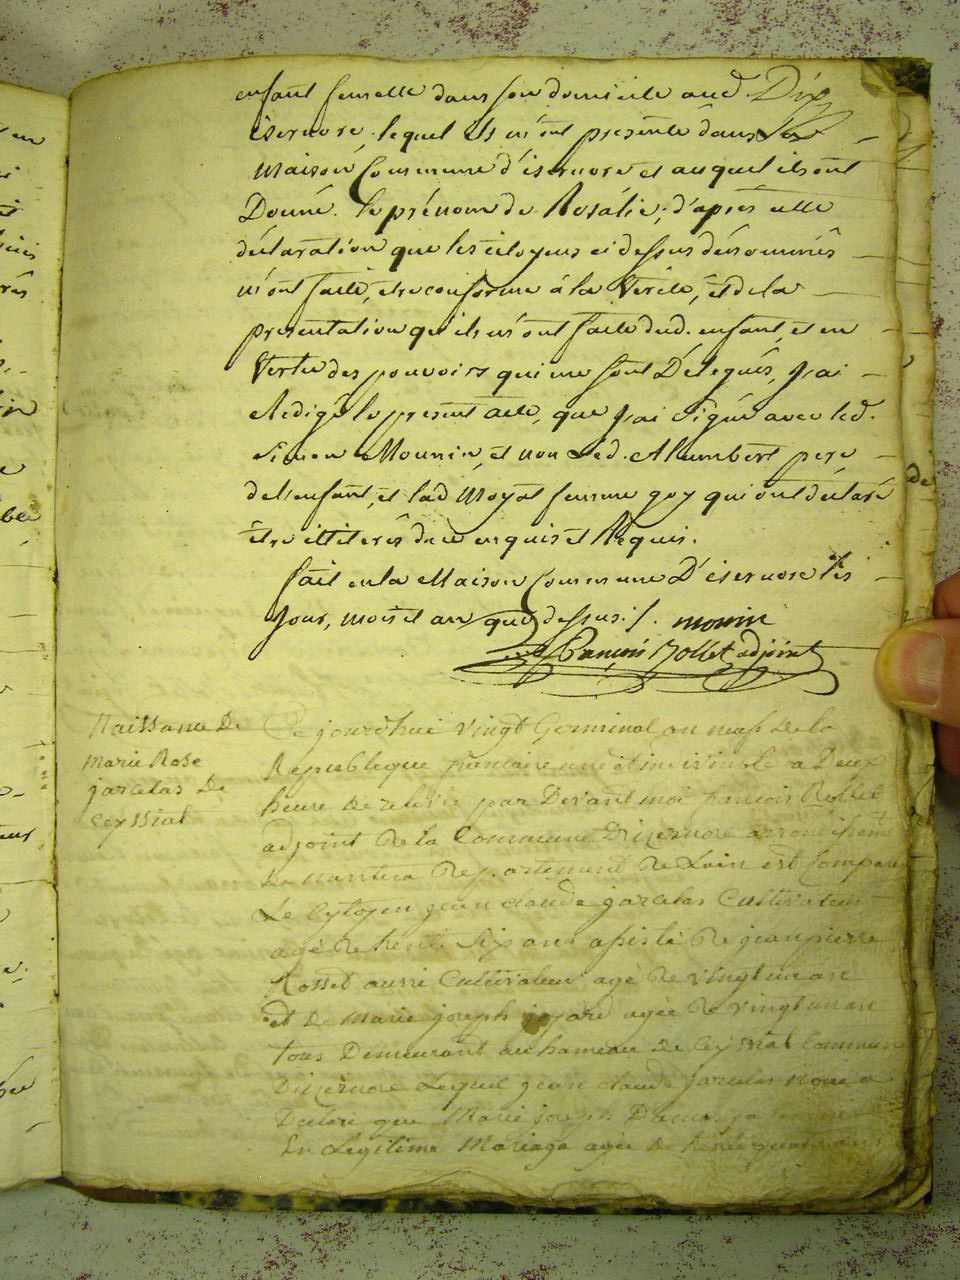 enfant femelle dans son domicile aud. Dix
isernore. lequel ils m'ont présenté dans la
maison Commune d'isernore et auquel ils ont
Donné. le prénom de Rosalie; d'après cette
déclaration que les citoyens ci dessus dénommés
m'ont faite, être conforme à la Verité, et de la
presentation qu'ils m'ont faite dud. enfant, et en
Vertu des pouvoirs qui me sont Délégués, J'ai
Redigé le present acte, que J'ai signé avec led.
Simon Mounin, et non Led. Humbert pere
de l'enfant, et lad. Moyat femme guy qui ont déclaré
être illiterés de ce enquis et Requis.
fait en la Maison Commune D'isernore les
Jour, mois et an que dessus ./. monin
françois Rollet adjoint
Naissance De
marie Rose
jarcelas De
Ceyssiat
Ce jourdhui vingt Germinal an neuf de la
Republeque francaire une et indivisible a Deux
heure de relevée par Devant moi francois Rollet
adjoint De la Commune Dizernore arrondissemt
De nantua Departement De Lain est Compare
Le Cytoyen jean claude jarcelas Cultivateur
agé de trente Six ans assisté De jean pierre
Rosset aussi Cultivateur agé De vingt un an
et De marie joseph agée De vingt un an
tous Demeurant au hameau de Ceyssiat Commune
Dizernore Lequel jean claude jarcelas nous a
Declaré que Marie joseph Damas sa
En Legitime Mariage agée de trente quatre ans